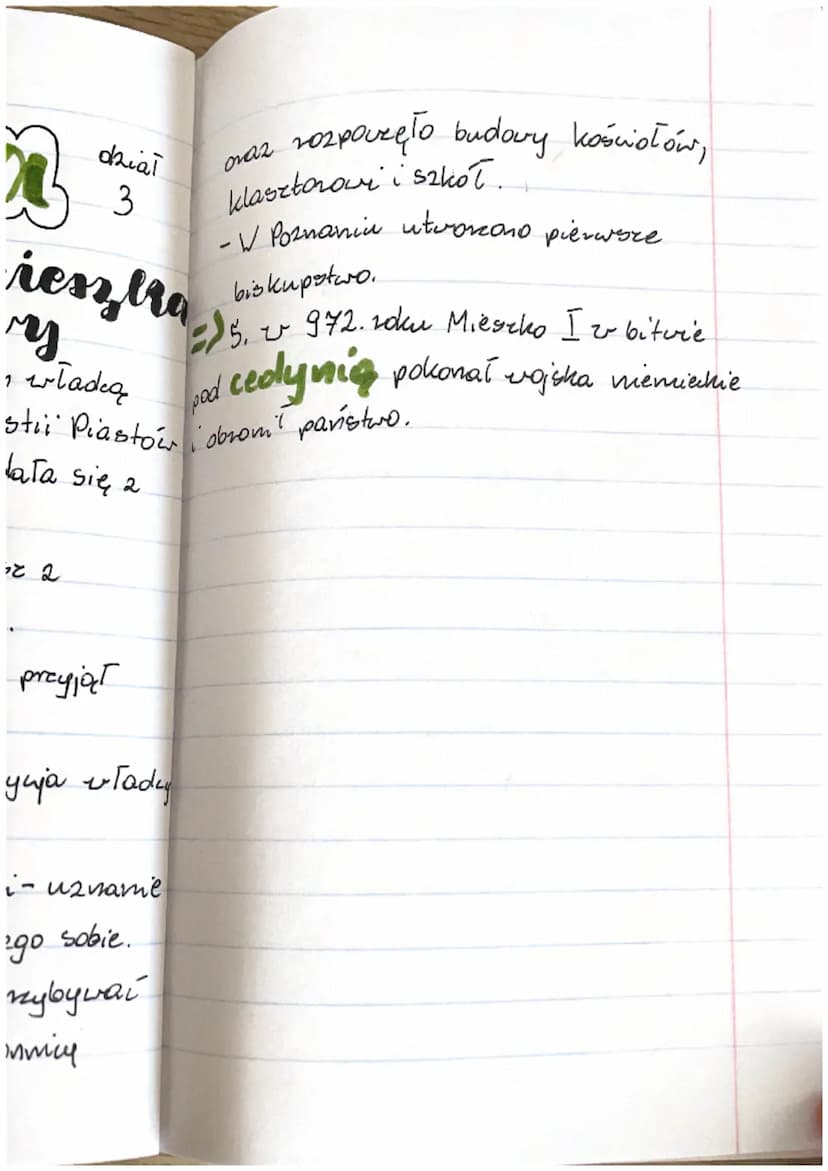 dział
3
ieszka
y
władcą
stii Piastów
ała się z
z
przyjął
ycja władcy
i- uznanie
ego sobie.
rzybywać
onnicy
oraz rozpoczęto budowy kościołów,
klasztorowi i szkół.
- W Poznaniu utworzono pierwsze
biskupstwo.
=> 5. w 972. roku Mieszko I w bitwie
pod cedynią pokonał wojska niemieckie
i obronił państwo.